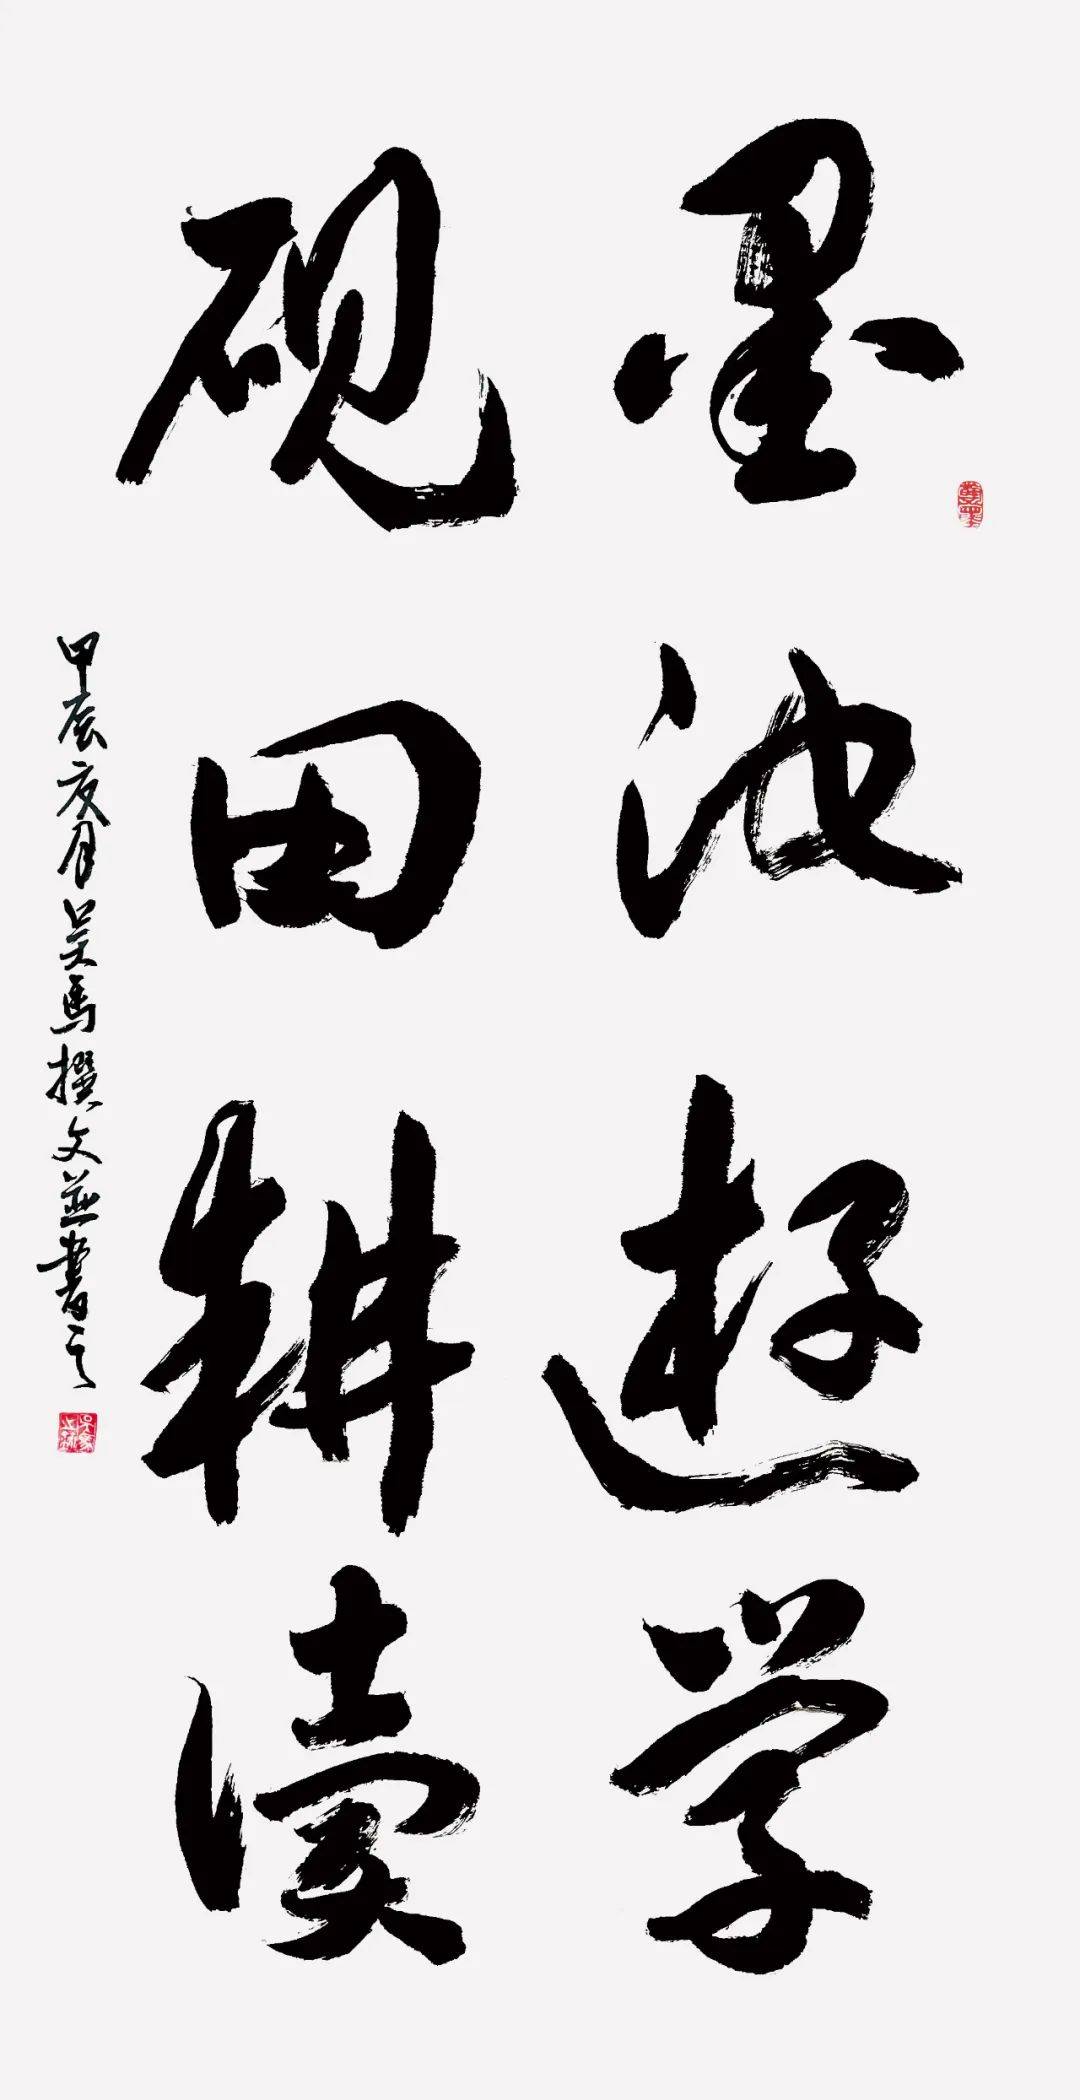 墨池游学
砚田耕读
甲辰夏月吴马撰文并书之